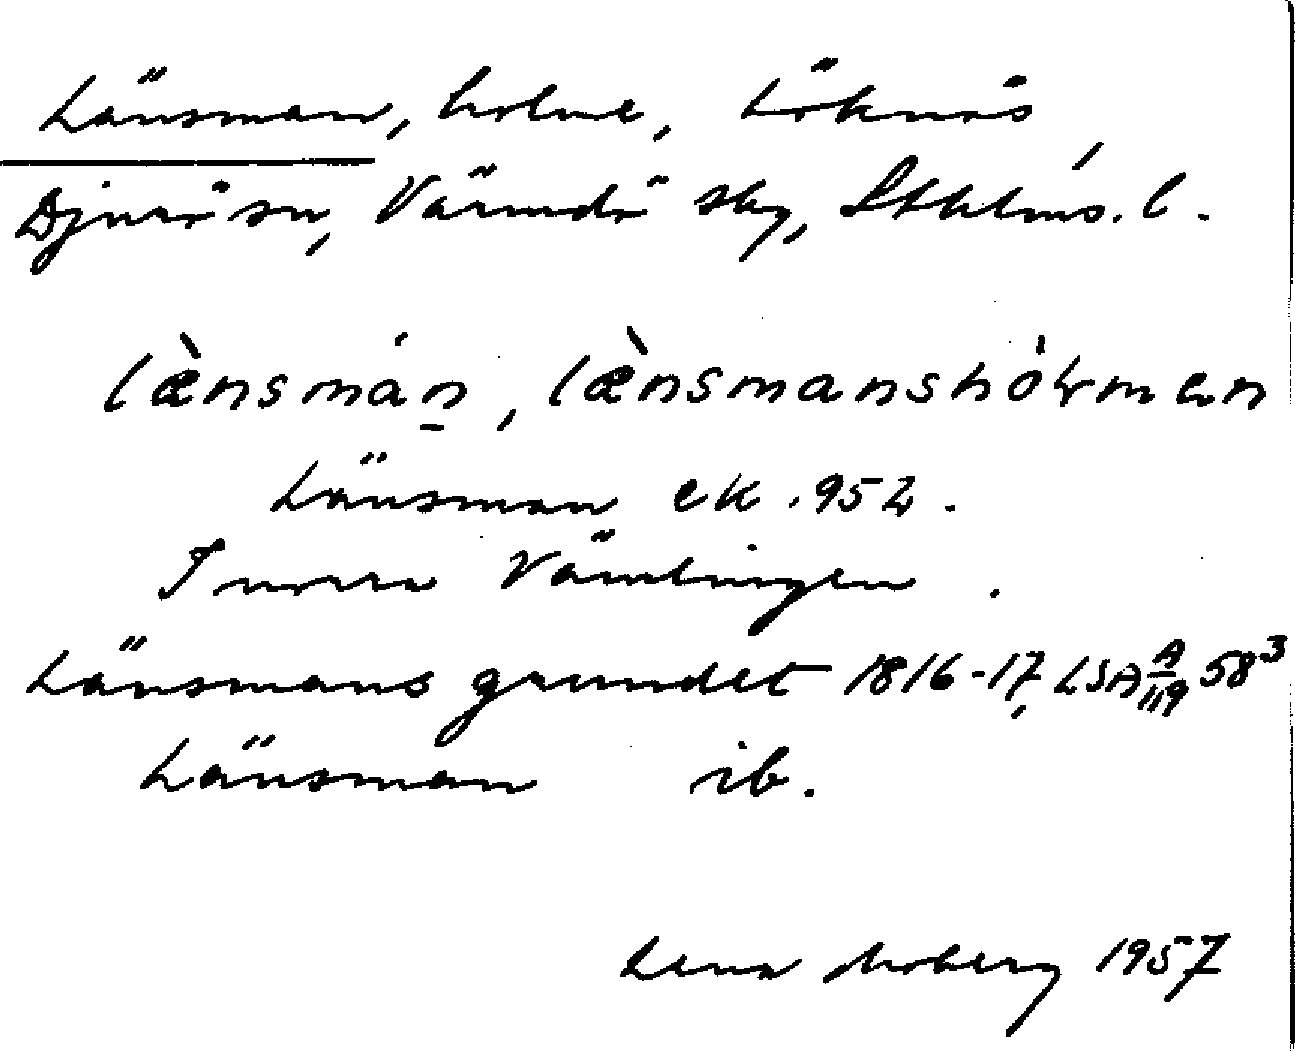 Länsman, holme, Löknäs,
Djurö sn, Värmdö skg, Sthlms. l.
lænsman, lænsmanshol
Länsman ek. 952.
I norra Vämlingen.
Länsmans grundet 1816-17, LSA A/119 58³
Länsman ib.
Lena Moberg 1957